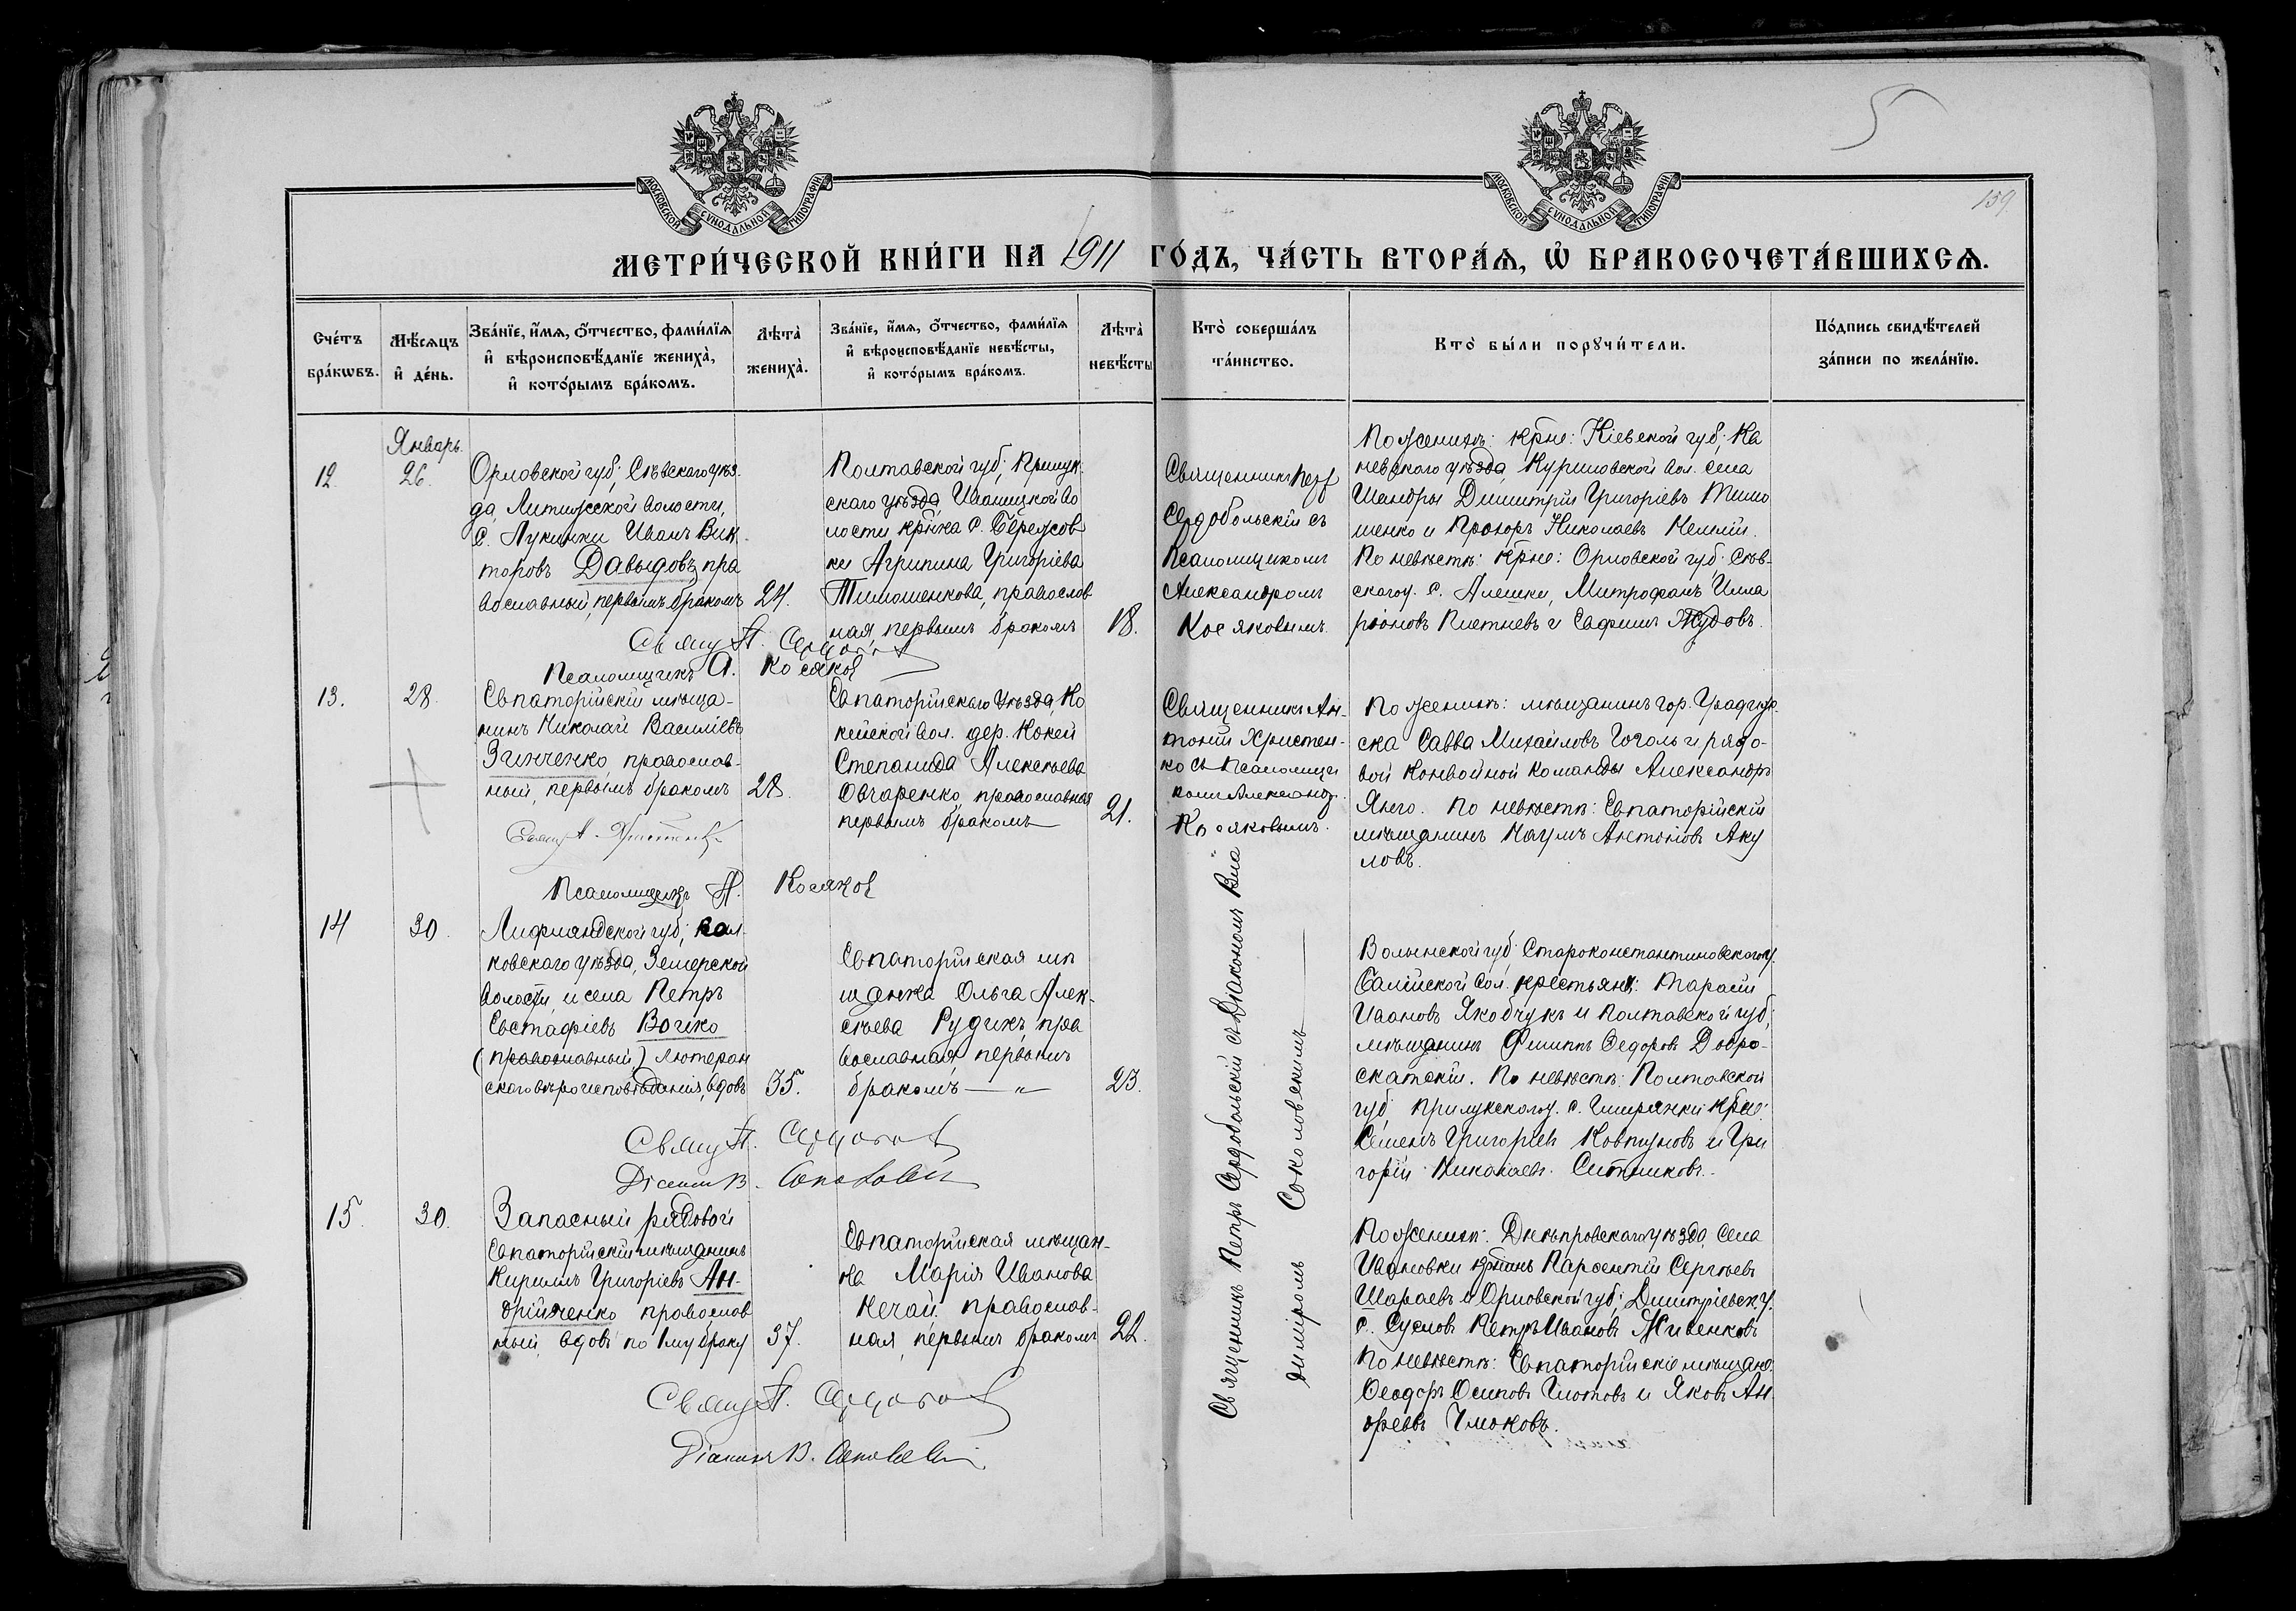 5
159.
МОСКОВСКОЙ СѴНОДАЛЬНОЙ ТИПОГРАФІИ
МОСКОВСКОЙ СѴНОДАЛЬНОЙ ТИПОГРАФІИ
МЕТРИ́ЧЕСКОЙ КНИ́ГИ НА 1911 ГО́ДЪ, ЧА́СТЬ ВТОРА́Ѧ, Ѡ҆ БРАКОСОЧЕТА́ВШИХСѦ.
Сче́тъ
бра́кѡвъ.
Мѣ́сѧцъ
и҆ де́нь.
Зва́нїе, и҆́мѧ, ѻ҆́тчество, фами́лїѧ
и҆ вѣроисповѣ́данїе жениха̀,
и҆ кото́рымъ бра́комъ.
Лѣта̀
жениха̀.
Зва́нїе, и҆́мѧ, ѻ҆́тчество, фами́лїѧ
и҆ вѣроисповѣ́данїе невѣ́сты,
и҆ кото́рымъ бра́комъ.
Лѣта̀
невѣ́сты
Кто̀ соверша́лъ
та́инство.
Кто̀ бы́ли порꙋчи́тели.
По́дпись свидѣ́телей
за́писи по жела́нїю.
Январь.
12.
26.
Орловской губ., Сѣвскаго уѣз-
да, Литижской волости,
с. Лукинки Иванъ Вик-
торовъ Давыдовъ, пра
вославный, первымъ бракомъ
24.
Полтавской губ., Прилук-
скаго уѣзда, Иваницкой во
лости, крѣка с. Бережов
ки Агрипина Григоріева
Тимошенкова, православ-
ная, первымъ бракомъ
18.
Священникъ Петр
Сердобольскій съ
Псаломщикомъ
Александромъ
Косяковымъ.
По женихѣ: крѣне: Кіевской губ., Ка
невскаго уѣзда, Куриловской вол. села
Шандры Димитрій Григоріевъ Тимо
шенко и Прохоръ Николаевъ
По невѣстѣ: крѣне: Орловской губ. Сѣв-
скагоу. с. Алешки, Митрофанъ Илла
ріоновъ Плетневъ и Жудовъ.
Свящ. П. Сердобол
Псаломщикъ А. Косяков
13.
28.
Евпаторійскій мѣща-
нинъ Николай Василіевъ
Зинченко, православ-
ный, первымъ бракомъ
28.
Евпаторійскаго уѣзда, Ко
кейской вол. дер. Кокей
Степанида Алексѣева
Овчаренко, православная
первымъ бракомъ
21.
Священникъ Ан-
тоній Христен-
ко съ Псаломщи
комъ Александ.
Косяковымъ.
По женихѣ: мѣщанинъ гор. Градиж-
ска Савва Михайловъ Гоголь и рядо-
вой Конвойной команды Александръ
По невѣстѣ: Евпаторійскій
мѣщанинъ Наумъ Антоновъ Аку
ловъ.
Свящ. А. Христенко
Псаломщикъ А. Косяков
14
30.
Лифляндской губ., Вал-
ковскаго уѣзда, Земерской
волости, и села Петръ
Евстафіевъ Вочко
(православный,) лютеран
скаго вѣроисповѣданія, вдовъ
35.
Евпаторійская мѣ
щанка Ольга Алек-
сѣева Рудикъ, пра
вославная, первымъ
бракомъ — „ —
23.
Священникъ Петръ Сердобольскій съ Діакономъ Вла
диміромъ Соколовскимъ
Волынской губ. Староконстантиновскагоу.
вол. крестьяне: Тарасій
Ивановъ Якобчукъ и Полтавской губ.,
мѣщанинъ Филиппъ Ѳедоровъ Добро-
скатскій. По невѣстѣ: Полтавской
губ., Прилукскагоу. с.
Семенъ Григоріев Ковтуновъ и Гри
горій Николаевъ Ситниковъ.
Свящ. П. Сердобол
Діаконъ В. Соколовскій
15.
30.
Запасный рядовой
Евпаторійскій мѣщанинъ
Кириллъ Григоріевъ Ан-
дрійченко православ
ный, вдовъ по 1му браку
37.
Евпаторійская мѣщан-
ка Марія Иванова
Нечай православ-
ная, первымъ бракомъ
22.
По женихѣ: Днѣпровскаго уѣзда, села
Ивановки Парѳентій Сергѣевъ
Шараевъ и Орловской губ.; Димитріевск.у.
с. Сусловъ Петръ Ивановъ Живенковъ
По невѣстѣ: Евпаторійскіе мѣщане.
Ѳеодоръ Осиповъ Глотовъ и Яковъ Ан
дреевъ Чмоковъ.
Свящ. П. Сердобол
Діаконъ В. Соколовскій